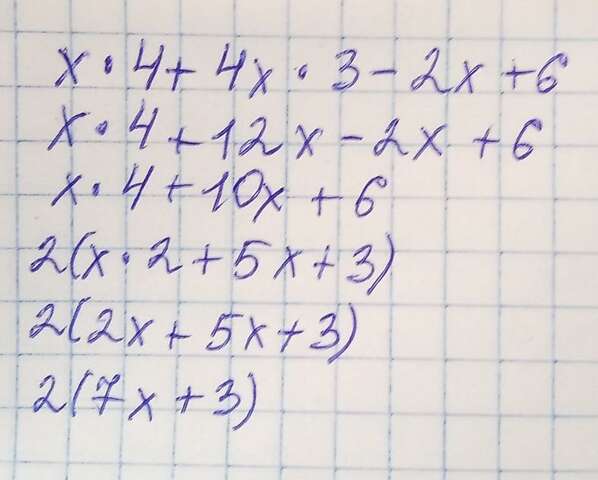 x · 4 + 4x · 3 - 2x + 6
x · 4 + 12x - 2x + 6
x · 4 + 10x + 6
2(x · 2 + 5x + 3)
2(2x + 5x + 3)
2(7x + 3)